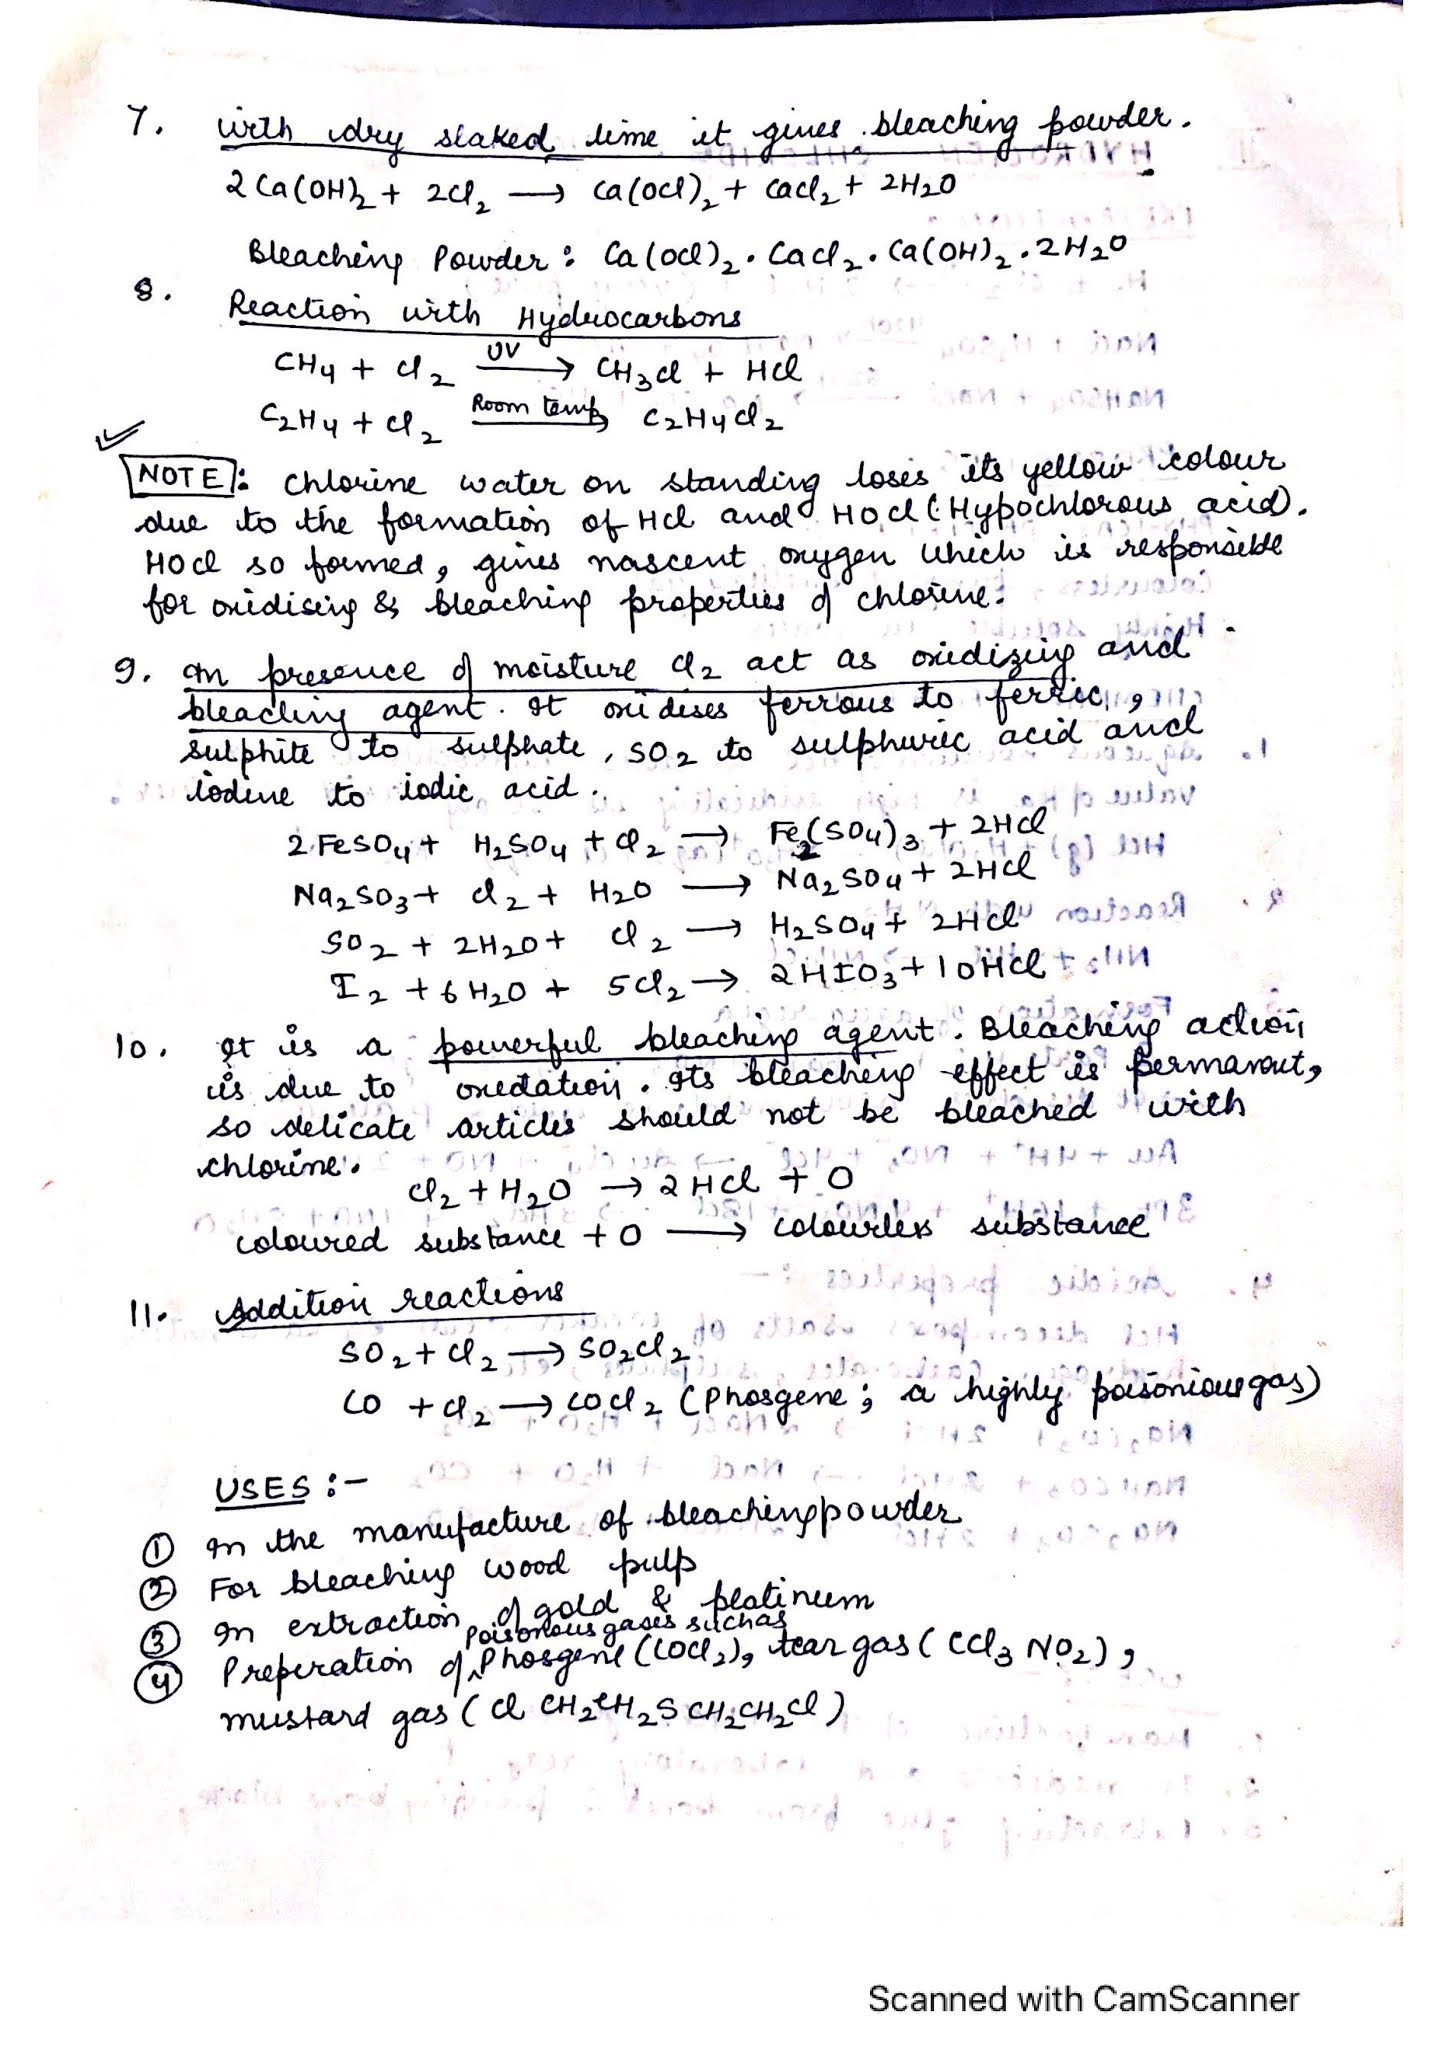 7. With dry slaked lime it gives bleaching powder.
2Ca(OH)2 + 2Cl2 → Ca(OCl)2 + CaCl2 + 2H2O
Bleaching Powder: Ca(OCl)2 · CaCl2 · Ca(OH)2 · 2H2O
8. Reaction with Hydrocarbons
CH4 + Cl2 UV → CH3Cl + HCl
C2H4 + Cl2 Room temp → C2H4Cl2
NOTE: Chlorine water on standing loses its yellow colour
due to the formation of HCl and HOCl (Hypochlorous acid).
HOCl so formed, gives nascent oxygen which is responsible
for oxidising & bleaching properties of chlorine.
9. In presence of moisture Cl2 act as oxidizing and
bleaching agent. It oxidises ferrous to ferric,
sulphite to sulphate, SO2 to sulphuric acid and
iodine to iodic acid.
2FeSO4 + H2SO4 + Cl2 → Fe2(SO4)3 + 2HCl
Na2SO3 + Cl2 + H2O → Na2SO4 + 2HCl
SO2 + 2H2O + Cl2 → H2SO4 + 2HCl
I2 + 6H2O + 5Cl2 → 2HIO3 + 10HCl
10. It is a powerful bleaching agent. Bleaching action
is due to oxidation. Its bleaching effect is permanent,
so delicate articles should not be bleached with
chlorine.
Cl2 + H2O → 2HCl + O
coloured substance + O → colourless substance
11. Addition reactions
SO2 + Cl2 → SO2Cl2
CO + Cl2 → COCl2 (Phosgene; a highly poisonious gas)
USES :-
① In the manufacture of bleaching powder
② For bleaching wood pulp
③ In extraction of gold & platinum
poisonous gases such as
④ Preperation of Phosgene (COCl2), tear gas (CCl3NO2),
mustard gas (Cl CH2CH2SCH2CH2Cl)
Scanned with CamScanner